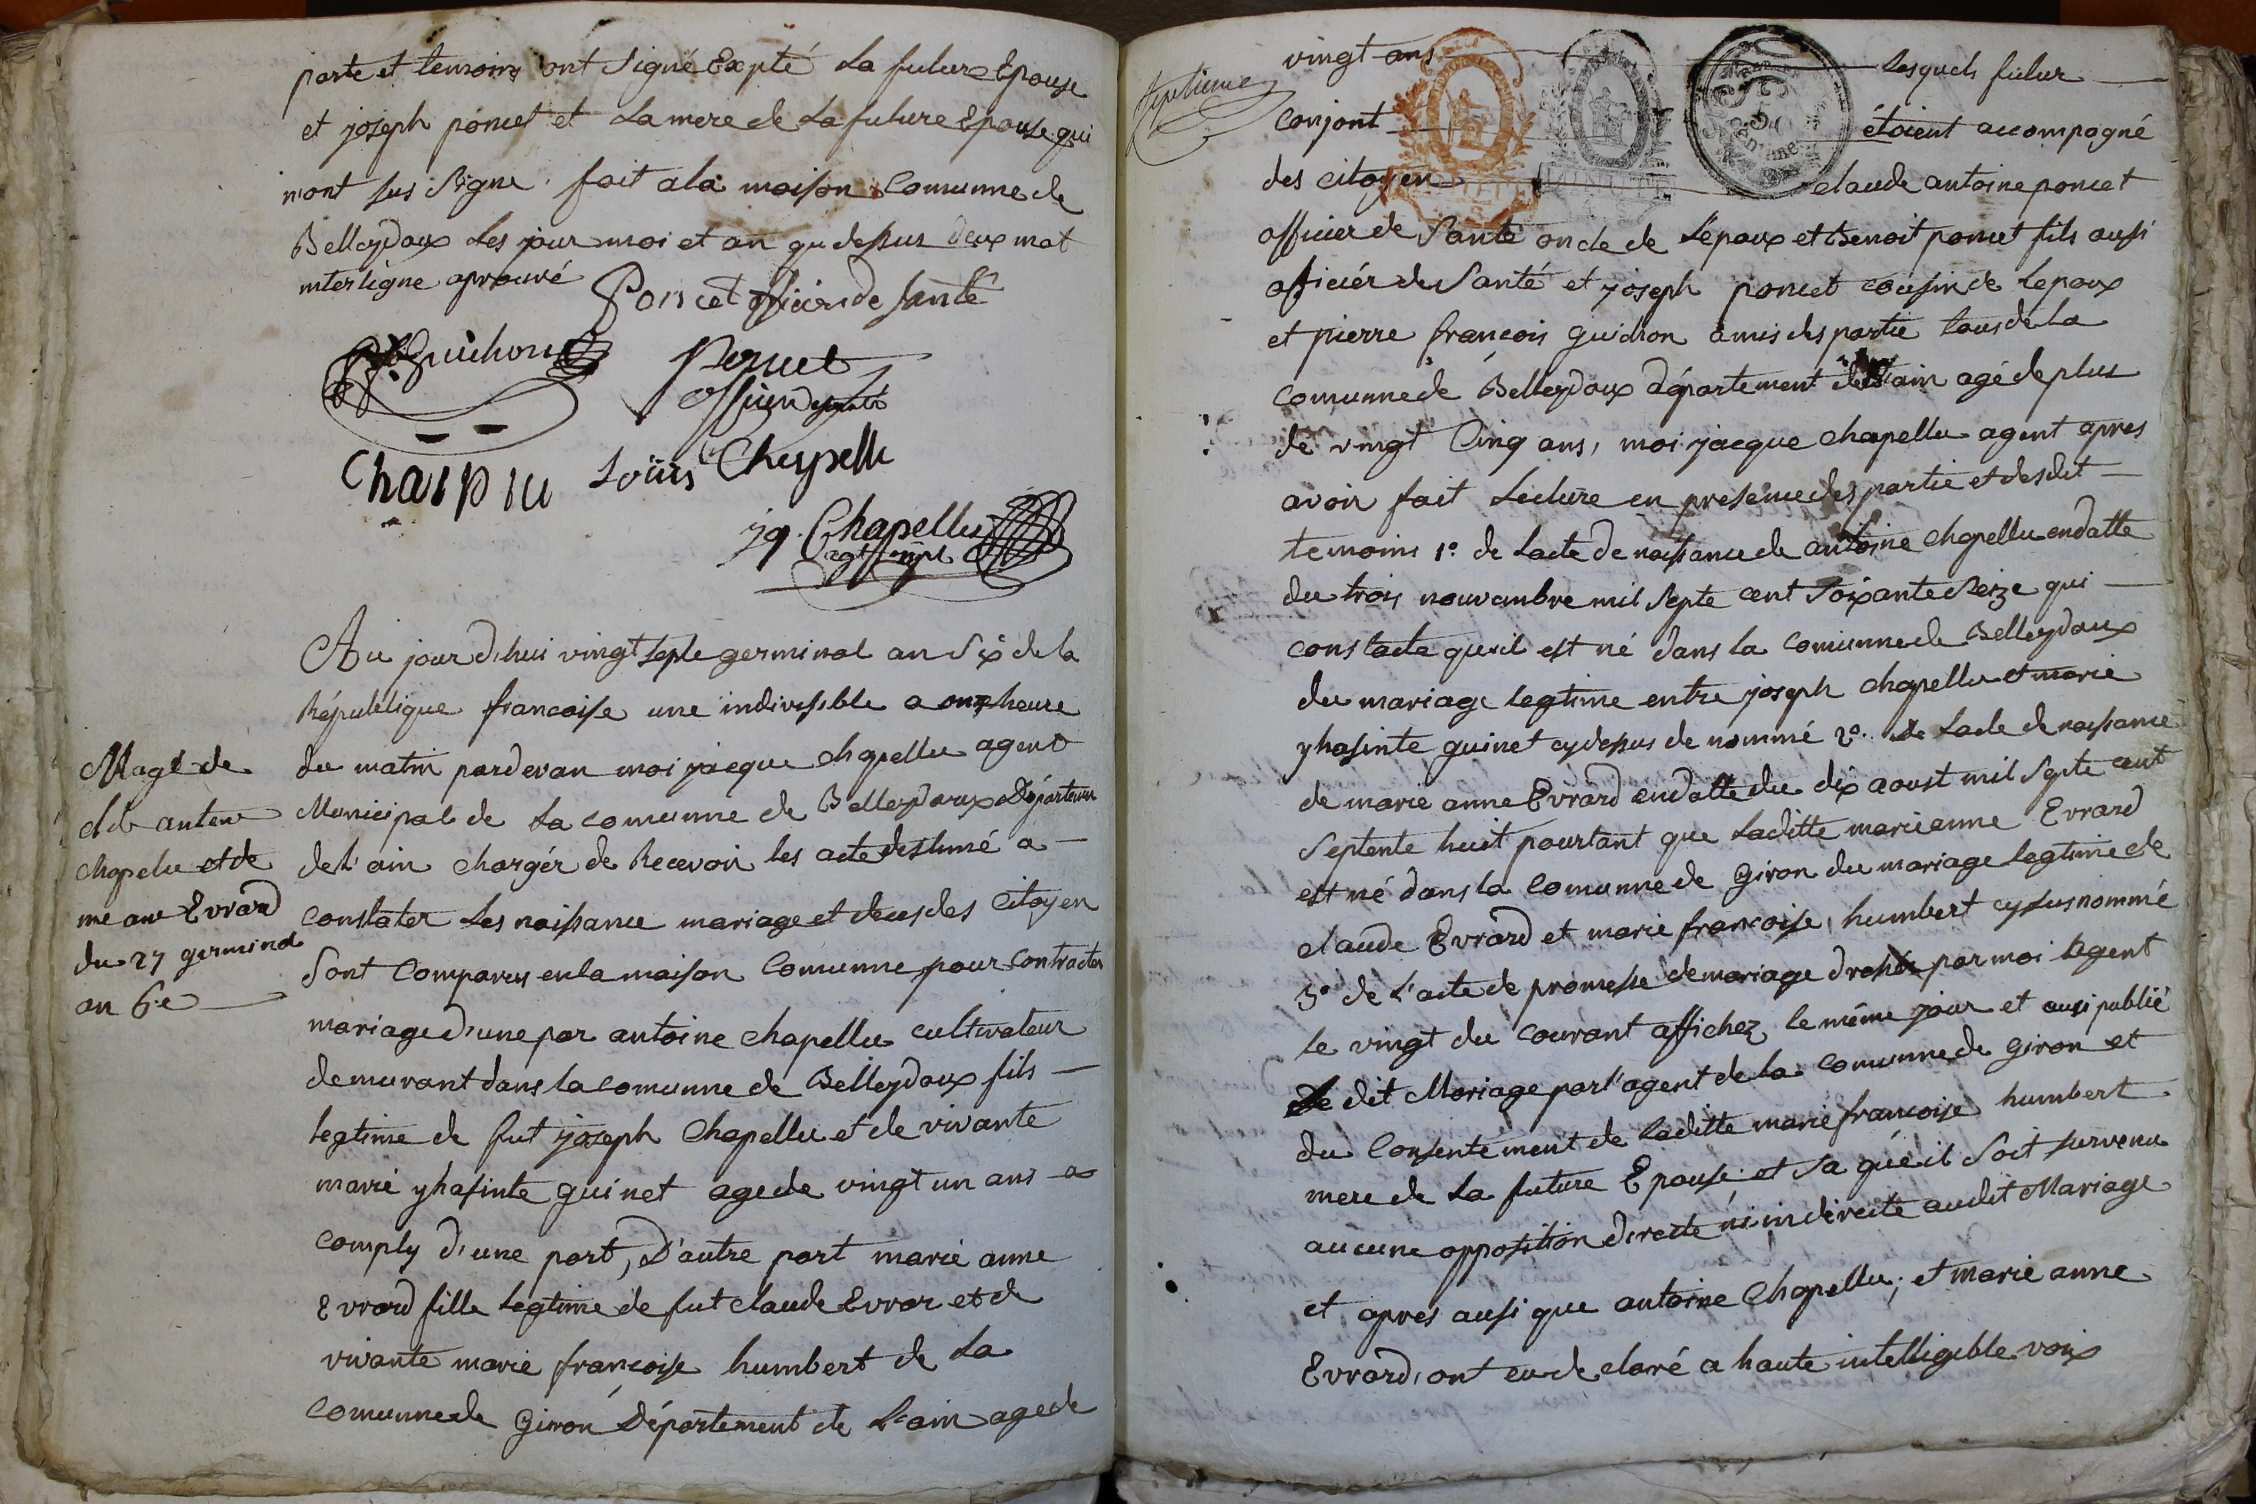 parte et temoins ont signé Expté La future Epouse
et joseph poncet et La mere de La future Epouse qui
n'ont sus signe. fait a la maison comunne de
Belleydoux Les jour moi et an que desus deux mot
interligne aprouvé
Poncet officier de santé
Guichon
Poncet
officier de santé
Chaipiu Louis Chapellu
jq. Chapellu
agt mpl
Mage de
antoine
chapelu et de
me ane Evrard
du 27 germinal
an 6e
Au jourd'hui vingt septe germinal an Six de la
République francoise une indivisible a onze heure
du matin pardevan moi jacque chapellu agent
Municipal de La comunne de Belleydoux Départemen
de l'ain chargér de Recevoir les acte destiné a
constater Les naissance mariage et deces des Citoyen
Sont Comparus en la maison Comunne pour Contracter
mariage d'une par antoine chapellu cultivateur
demurant dans la comunne de Belleydoux fils
legtime de fut joseph Chapellu et de vivante
marie yhasinte guinet age de vingt un ans
comply d'une part, D'autre part marie anne
Evrard fille legtime de fut claude Evrar et de
vivante marie francoise humbert de La
Comunne de Giron Département de L'ain age de
septieme
vingt ans Lesquels futur
conjont étoient accompagné
des citoyen claude antoine poncet
officier de Santé oncle de L'epoux et Benoit poncet fils ausi
oficiér de Santé et joseph poncet cousin de Lepoux
et pierre francois guichon amis des partie tous de La
comunne de Belleydoux département de L'ain agé de plus
de vingt Cinq ans, moi jacque chapellu agent apres
avoir fait Lecture en presence des partie et desdit
temoins 1º de Lacte de naissance de antoine chapellu en datte
du trois nouvanbre mil Septe cent soixante seize qui
constacte qu'il est né dans la comunne de Belleydoux
du mariage legtime entre joseph chapellu et marie
yhasinte guinet cy desus de nommé 2º. de Lacte de naissance
de marie anne Evrard en datte du dix aoust mil Septe cent
Septente huit pourtant que Laditte marie anne Evrard
est né dans la comunne de Giron du mariage legtime de
claude Evrard et marie francoise humbert cy sus nommé
3º de L'acte de promesse de mariage dressér par moi Lagent
le vingt du courant affichez le même jour et ausi publié
Le dit Mariage par l'agent de la comunne de giron et
du Consentement de Laditte marie francoise humbert
mere de La future Epouse et sa que il soit survenu
aucune opposition directe ni indirecte audit Mariage
et apres ausi que antoine Chapellu, et marie anne
Evrard, ont eu de claré a haute intelligible voix